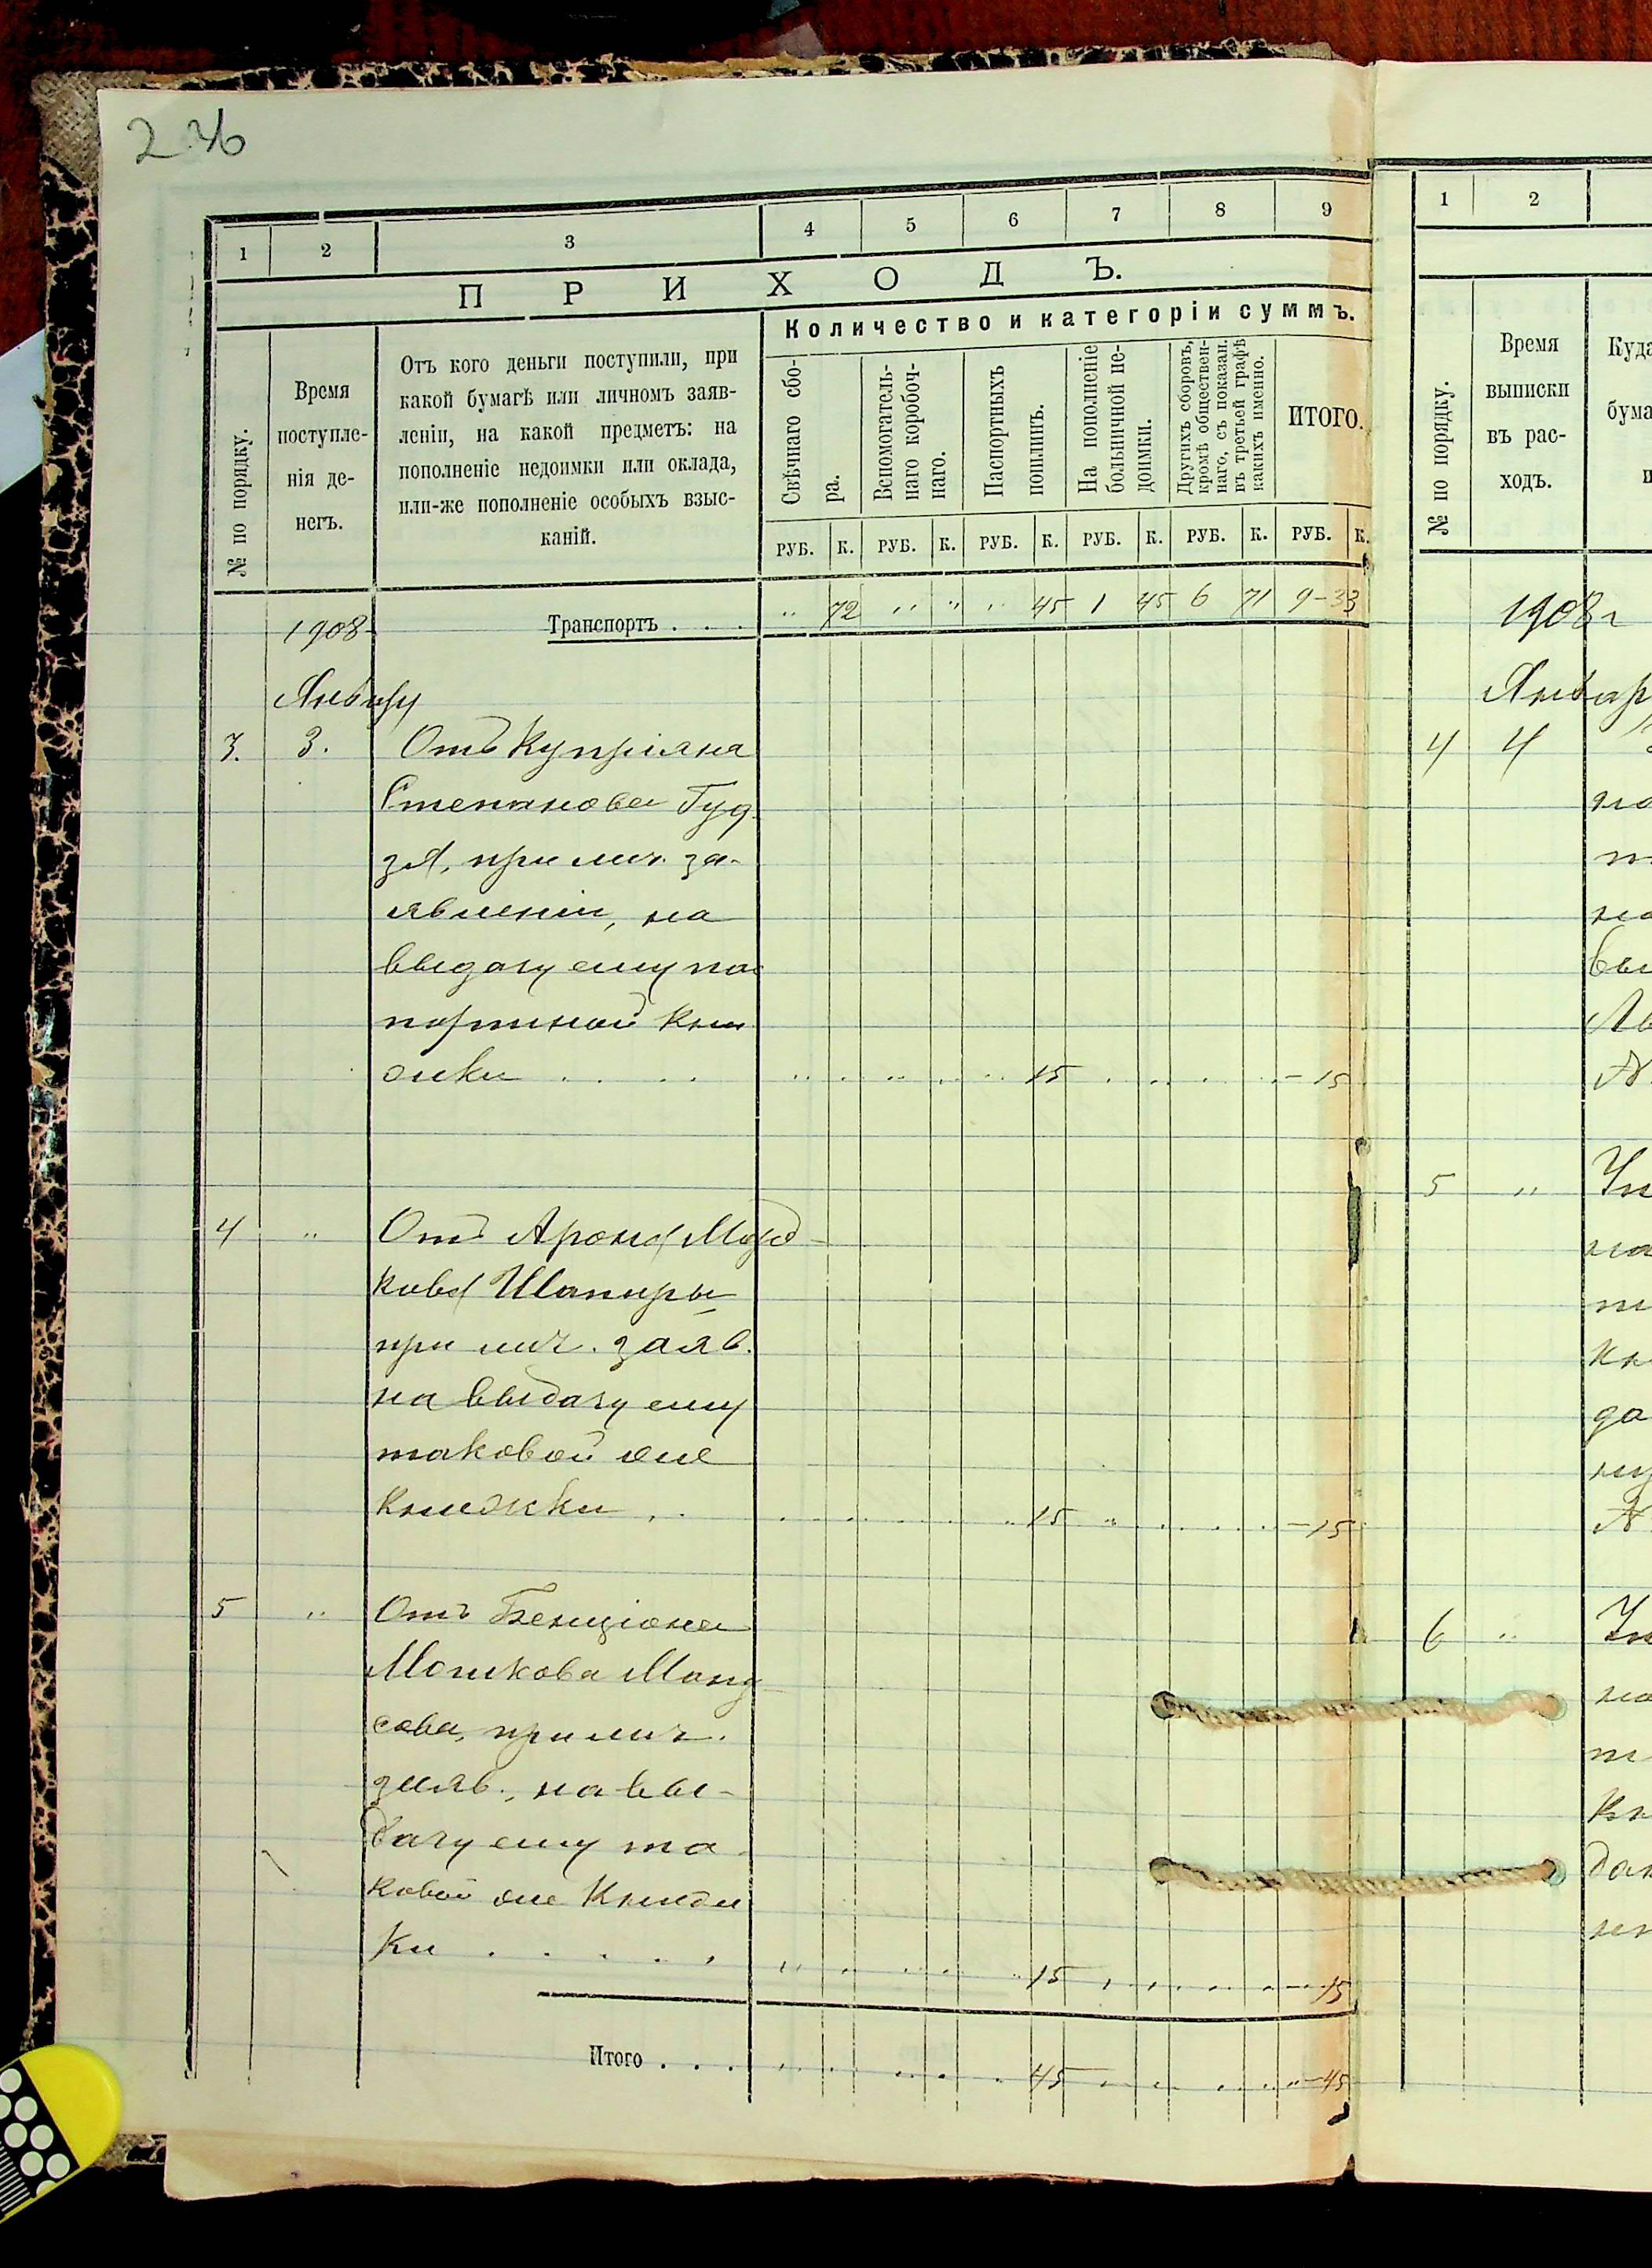 236
1 2 3 4 5 6 7 8 9
ПРИХОДЪ.
№ по порядку.
Время
поступле-
нія де-
негъ.
Отъ кого деньги поступили, при
какой бумагѣ или личномъ заяв-
леніи, на какой предметъ: на
пополненіе недоимки или оклада,
или-же пополненіе особыхъ взыс-
каній.
Количество и категоріи суммъ.
Свѣчнаго сбо-
ра.
Вспомогатель-
наго коробоч-
наго.
Паспортныхъ
пошлинъ.
На пополненіе
больничной не-
доимки.
Другихъ сборовъ,
кромѣ обществен-
наго, съ показан.
въ третьей графѣ
какихъ именно.
ИТОГО.
РУБ. К. РУБ. К. РУБ. К. РУБ. К. РУБ. К. РУБ. К.
1908 Транспортъ . . . " 72 " " " 45 1 45 6 71 9-33
Январу
3. 3. Отъ Купріяна
Степанова Гуд
зя, при лич. за-
явленіи, на
выдачу ему пас
портной кни
жки . . . . 15 - 15
4 " Отъ Арона Морд
кова Шапиры
при лич. заяв.
на выдачу ему
таковой же
книжки . . 15 - 15
5 " Отъ Бенціона
Мошкова Ману
сова, при лич.
заяв., на вы-
дачу ему та
ковой же книж
ки . . . . . 15 - 15
Итого . . . 45 - 45
1 2
№ по порядку.
Время
выписки
въ рас-
ходъ.
Куда
бума
1908 г
Январ
4 4
по
на
вы
5 "
на
кн
да
6 "
на
кн
дач